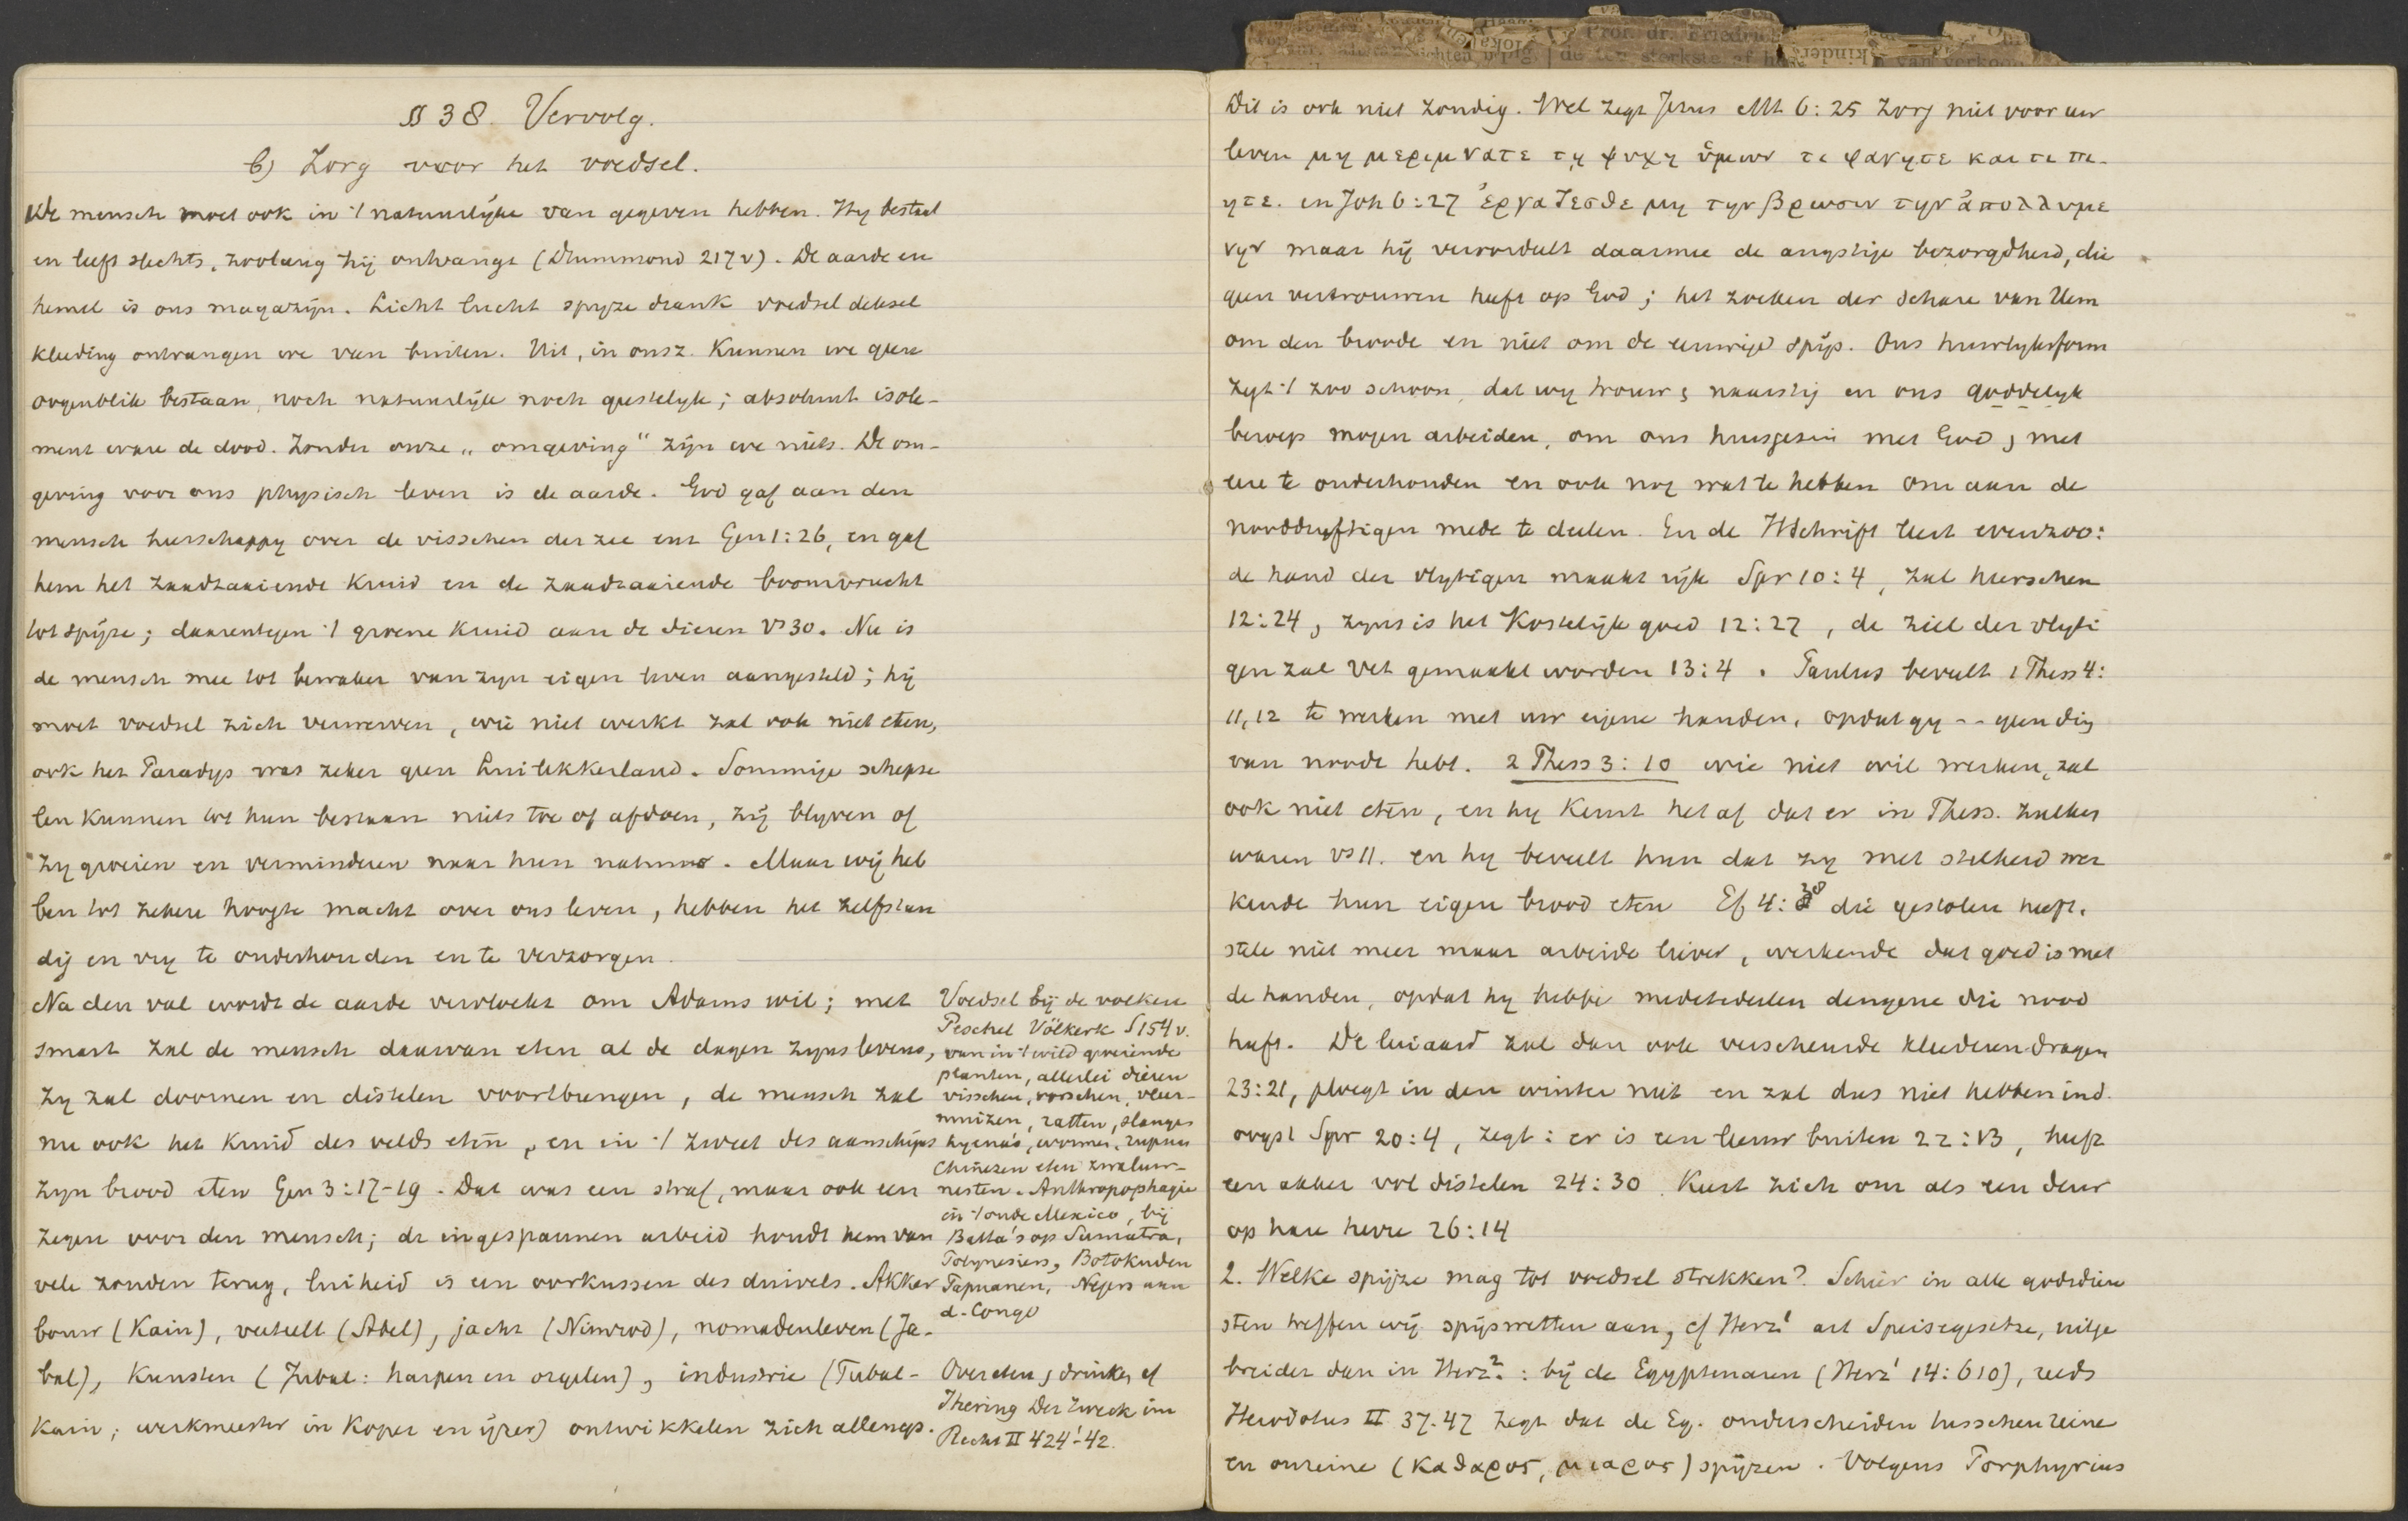 § 38. Vervolg.
b) Zorg voor het voedsel.
De mensch moet ook in 't natuurlijke van gegeven hebben. Hij bestaat
en leeft slechts, zoolang hij ontvangt (Drummond 217v). De aarde en
hemel is ons magazijn. Licht lucht spijze drank voedsel deksel
kleeding ontvangen we van buiten. Uit, in onsz. kunnen we geen
oogenblik bestaan, noch natuurlijk noch geestelijk; absoluut isole-
ment ware de dood. Zonder onze „omgeving" zijn we niets. De om-
geving voor ons physisch leven is de aarde. God gaf aan den
mensch heerschappy over de visschen der zee enz Gen 1:26, en gaf
hem het zaadzaaiende kruid en de zaadzaaiende boomvrucht
tot spijze; daarentegen 't groene kruid aan de dieren vs 30. Nu is
de mensch mee tot bewaker van zijn eigen leven aangesteld; hij
moet voedsel zich verwerven, wie niet werkt zal ook niet eten,
ook het Paradijs was zeker geen Luilekkerland. Sommige schepse
len kunnen tot hun bestaan niets toe of afdoen, zij blijven of
zij groeien en verminderen naar hun natuur. Maar wij heb
ben tot zekere hoogte macht over ons leven, hebben het zelfstan
dig en vrij te onderhouden en te verzorgen.
Na den val wordt de aarde vervloekt om Adams wil; met
smart zal de mensch daarvan eten al de dagen zijns levens,
zij zal doornen en distelen voortbrengen, de mensch zal
nu ook het kruid des velds eten, en in 't zweet des aanschijns
zijn brood eten Gen 3:17-19. Dat was een straf, maar ook een
zegen voor den mensch; de ingespannen arbeid houdt hem van
vele zonden terug, luiheid is een oorkussen des duivels. Akker
bouw (Kain), veeteelt (Abel), jacht (Nimrod), nomadenleven (Ja-
bal), kunsten (Jubal: harpen en orgelen), industrie (Tubal-
Kain; werkmeester in koper en ijzer) ontwikkelen zich allengs.
Voedsel bij de volken
Peschel Völkerk S 154 v.
van in 't wild groeiende
planten, allerlei dieren
visschen, vorschen, vleer-
muizen, ratten, slangen
hyena's, wormen, rupsen
Chineezen eten zwaluw-
nesten. Anthropophagie
in 't oude Mexico, bij
Batta's op Sumatra,
Polynesiers, Botokuden
Papuanen, Negers aan
d. Congo
Over eten & drinken cf
Jhering Der Zweck im
Recht II 424'-42.
Dit is ook niet zondig. Wel zegt Jezus Mt 6:25 Zorg niet voor uw
leven μη μεριμνατε τῃ ψυχῃ ὑμων τι φαγητε και τι πι-
ητε. en Joh 6:27 ἐργαζεσθε μη την βρωσιν την ἀπολλυμε
νην maar hij veroordeelt daarmee de angstige bezorgdheid, die
geen vertrouwen heeft op God; het zoeken der schare van Hem
om den broode en niet om de eeuwige spijs. Ons huwlyksform
zegt 't zoo schoon, dat wij trouw & naarstig in ons goddelijk
beroep mogen arbeiden, om ons huisgezin met God & met
eere te onderhouden en ook nog wat te hebben om aan de
nooddruftigen mede te deelen. En de HSchrift leert evenzoo:
de hand der vlijtigen maakt rijk Spr 10:4, zal heerschen
12:24, zijns is het kostelijk goed 12:27, de ziel der vlijti
gen zal vet gemaakt worden 13:4. Paulus beveelt 1 Thess 4:
11,12 te werken met uw eigene handen, opdat gij -- geen ding
van noode hebt. 2 Thess 3:10 wie niet wil werken, zal
ook niet eten, en hij keurt het af dat er in Thess. zulken
waren vs 11. en hij beveelt hun dat zij met stilheid wer
kende hun eigen brood eten Ef 4:28 die gestolen heeft,
stele niet meer maar arbeide liever, werkende dat goed is met
de handen, opdat hij hebbe mede te deelen dengene die nood
heeft. De luiaard zal dan ook verscheurde kleederen dragen
23:21, ploegt in den winter niet en zal dus niet hebben in d.
oogst Spr 20:4, zegt: er is een leeuw buiten 22:13, heeft
een akker vol distelen 24:30. Keert zich om als een deur
op hare herre 26:14
2. Welke spijze mag tot voedsel strekken? Schier in alle godsdien
sten treffen wij spijswetten aan, cf Herz¹ art Speisegesetze, uitge
breider dan in Herz². : bij de Egyptenaren (Herz¹ 14:610), reeds
Herodotus II 37.47 zegt dat de Eg. onderscheiden tusschen reine
en onreine (καθαρος, μιαρος) spijzen. Volgens Porphyrius